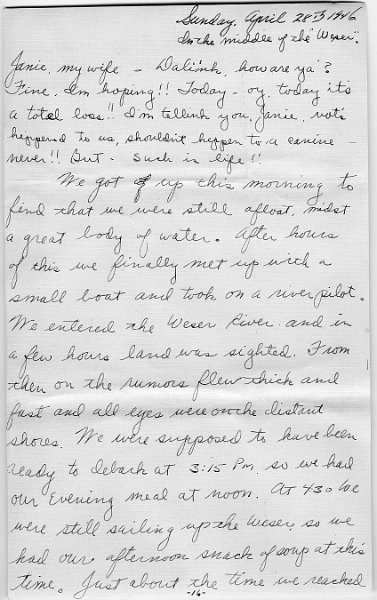 Sunday, April 28th 1946
In the middle of the "Weser".
Janie, my wife - Dalink, how are ya?
Fine, I'm hoping!! Today - oy, today it's
a total loss!! I'm tellink you, Janie, vot's
happened to us, shouldn't happen to a canine -
never!! But - such is life!!
We got up this morning to
find that we were still afloat, midst
a great body of water. After hours
of this we finally met up with a
small boat and took on a river pilot.
We entered the Weser River and in
a few hours land was sighted. From
then on the rumors flew thick and
fast and all eyes were on the distant
shores. We were supposed to have been
ready to debark at 3:15 Pm. so we had
our evening meal at noon. At 430 we
were still sailing up the Weser, so we
had our afternoon snack of soup at this
time. Just about the time we reached
-16-